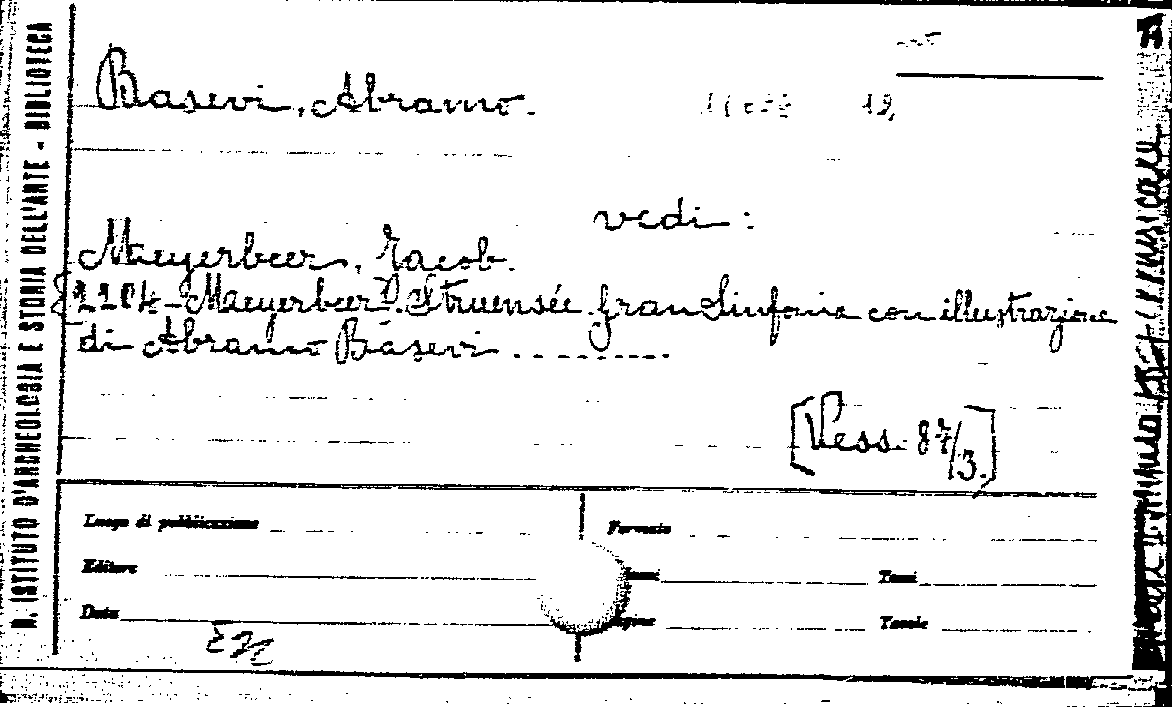 Basevi, Abramo.
vedi:
Meyerbeer, Jacob.
Meyerbeer. Struensée gran Sinfonia con illustrazione
di Abramo Basevi .........
[Vess. 87/3.]
Luogo di pubblicazione
Formato
Editore
Tomi
Data
Pagine
Tavole
R. ISTITUTO D'ARCHEOLOGIA E STORIA DELL'ARTE - BIBLIOTECA